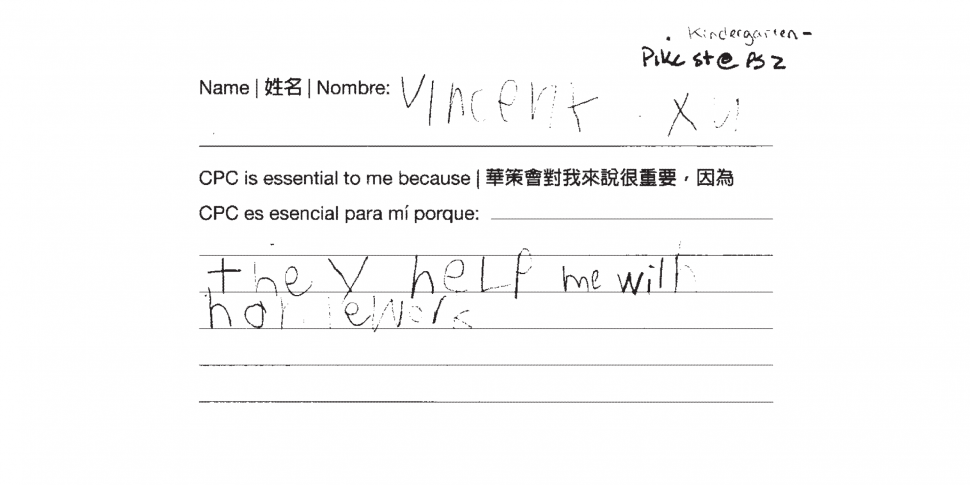 Kindergarten -
Pike st @ PS 2
Name | 姓名 | Nombre: Vincent Xu
CPC is essential to me because | 華策會對我來說很重要，因為
CPC es esencial para mí porque:
they help me with
homework